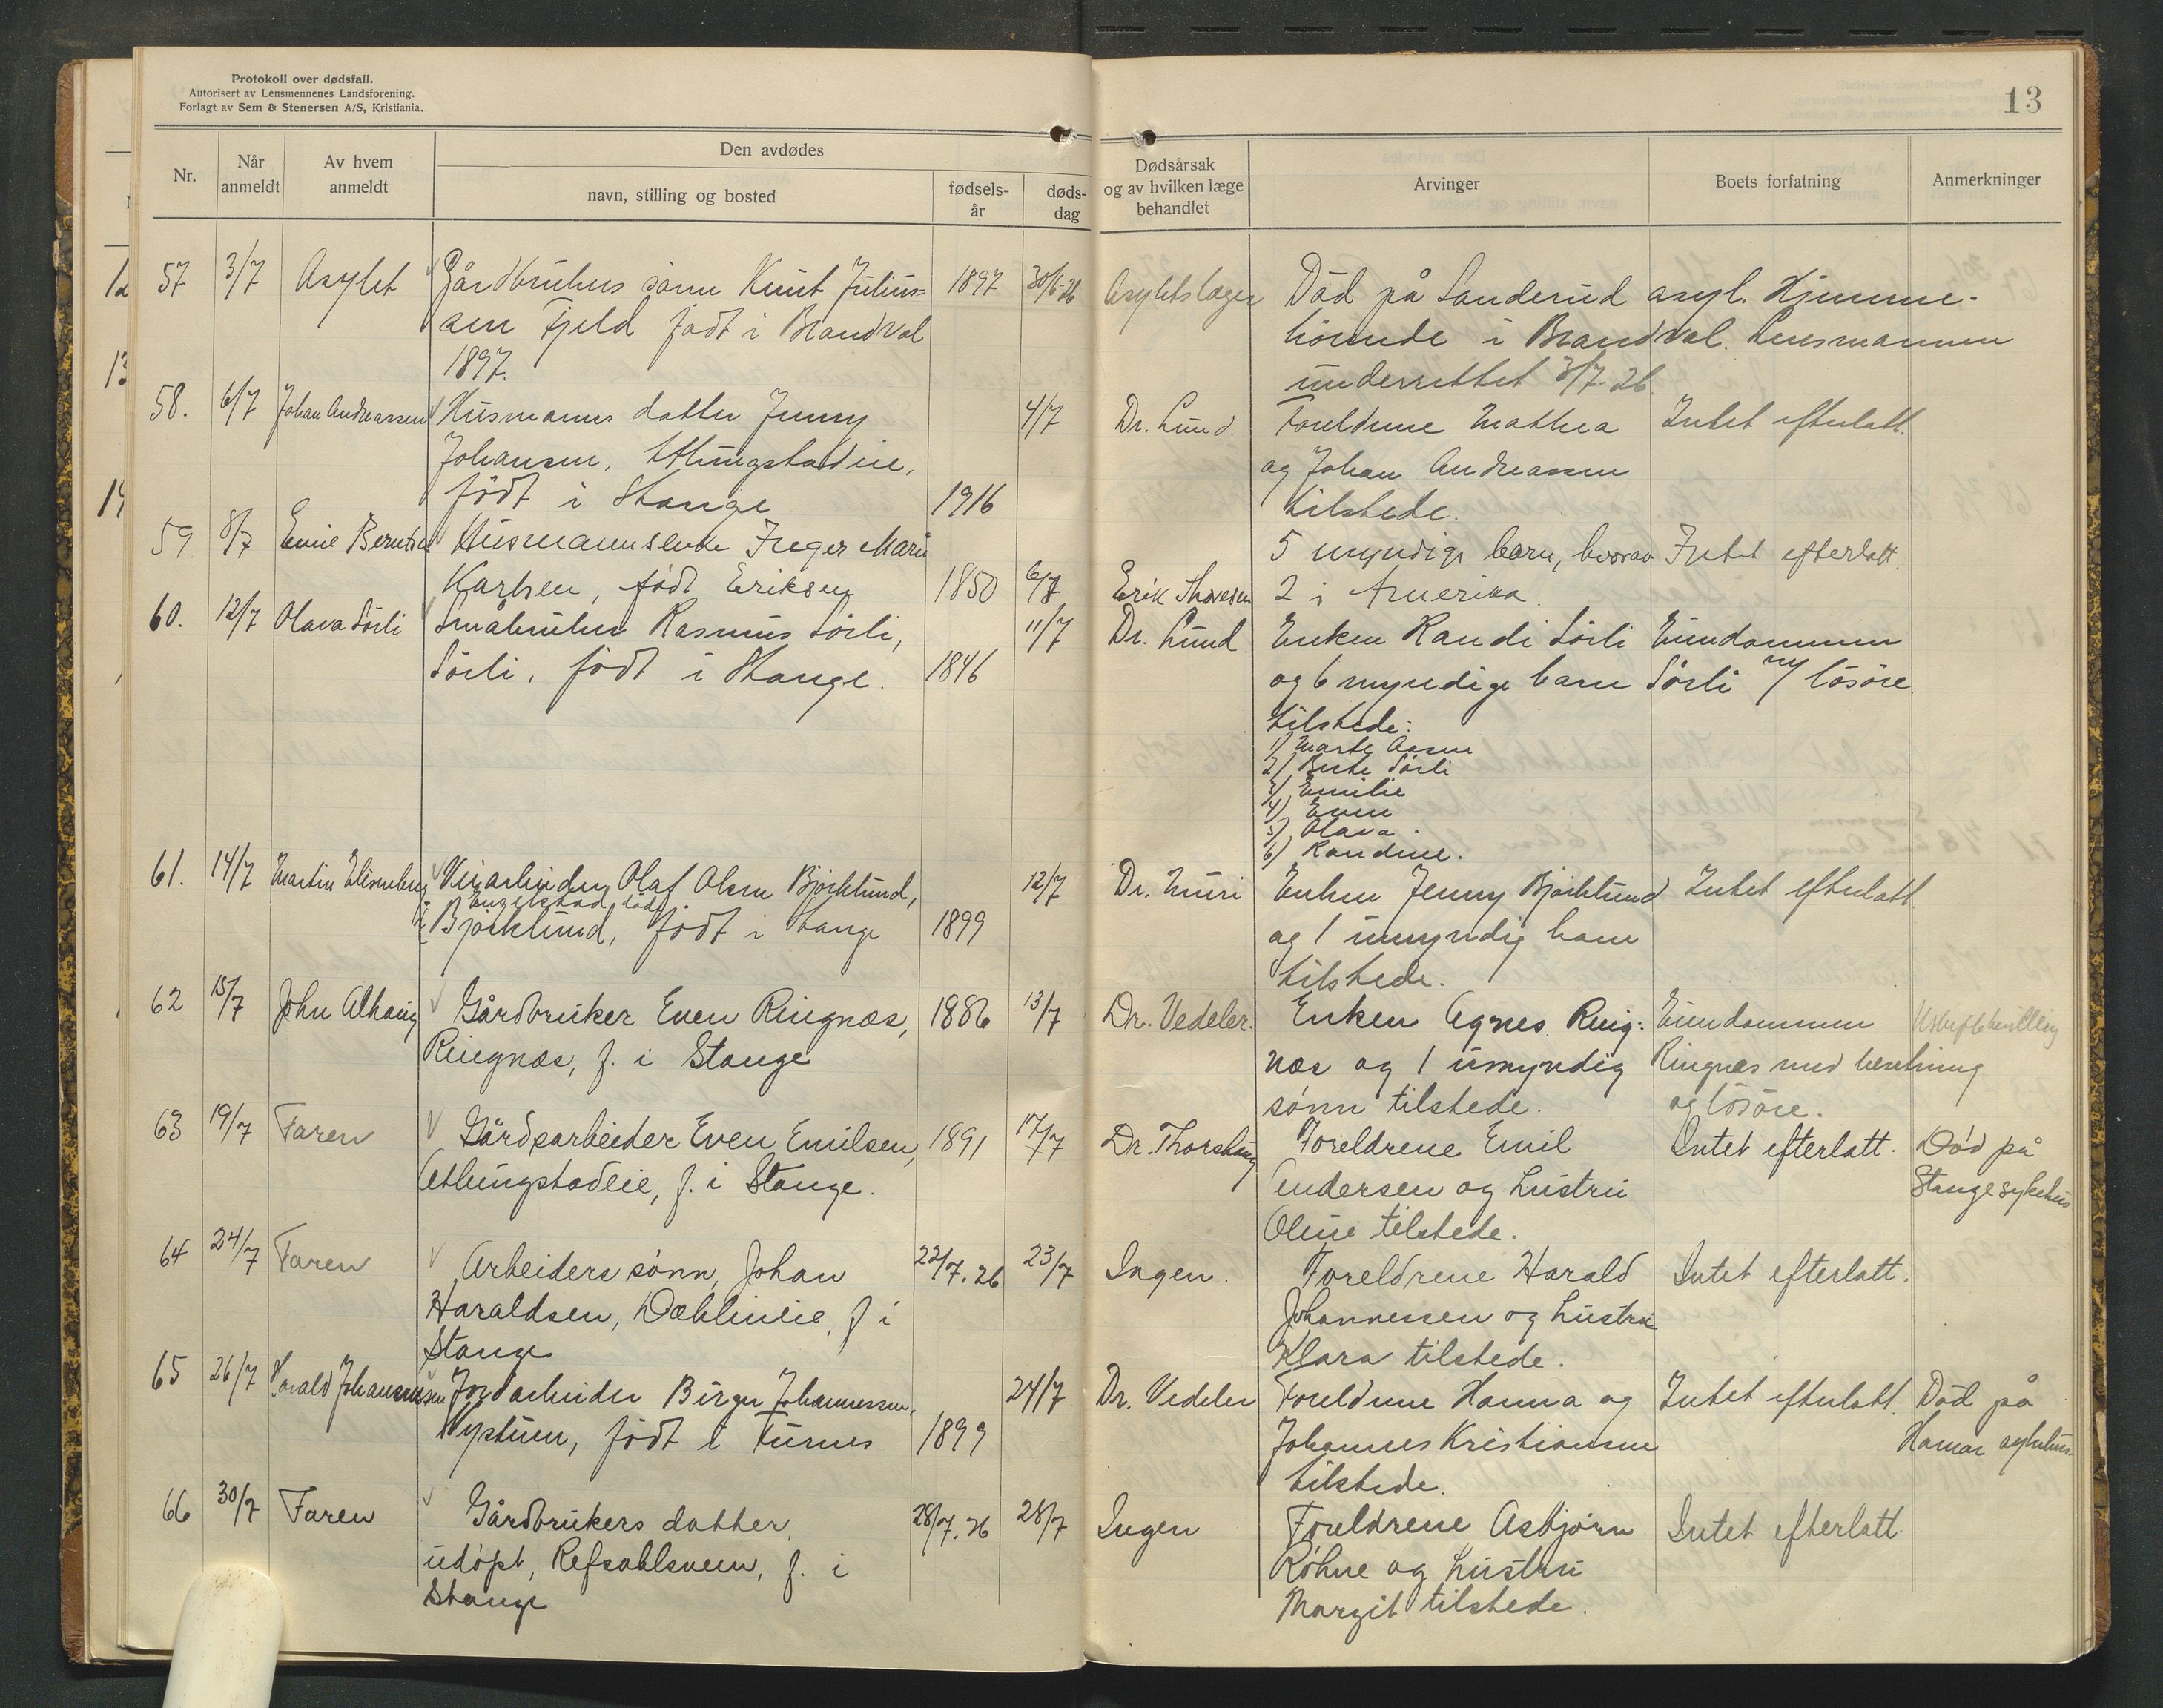 Protokoll over dødsfall.
Autorisert av Lensmennenes Landsforening.
Forlagt av Sem & Stenersen A/S, Kristiania.
13
Nr.
Når anmeldt
Av hvem anmeldt
Den avdødes
navn, stilling og bosted
fødsels-
år
døds-
dag
Dødsårsak
og av hvilken læge
behandlet
Arvinger
Boets forfatning
Anmerkninger
57 3/7 Asylet Gårdbrukers sønn Knut Julius= 1897 30/6-26 Asylets læger Död på Sanderud asyl. Hjemme-
sen Fjeld födt i Brandval hörende i Brandval. Lensmannen
1897. underrettet 3/7-26
58. 6/7 Johan Andreassen Husmanns datter Jenny 4/7 Dr. Lund. Foreldrene Mathea Intet efterlatt.
Johansen, Atlungstadeie, og Johan Andreassen
födt i Stange 1916 tilstede.
59 8/7 Husmannsenke Inger Marie 5 myndige barn, hvorav Intet efterlatt.
Karlsen, född Eriksen 1850 6/7 Erik Thoresen 2 i Amerika.
60. 12/7 Olava Sörli Småbruker Rasmus Sörli, 11/7 Dr. Lund. Enken Randi Sörli Eiendommen
Sörli, födt i Stange. 1846 og 6 myndige barn Sörli m/ lösöre.
tilstede:
1) Marte Aasen
2) Berte Sörli
3) Emilie
4) Even
5) Olava
6) Randine.
61. 14/7 Martin Veiarbeider Olaf Olsen Björklund, 12/7 Dr. Muri Enken Jenny Björklund Intet efterlatt.
Björklund, födt i Stange 1899 og 1 umyndig barn
tilstede.
62 15/7 John Alhaug Gårdbruker Even Ringnæs, 1886 13/7 Dr. Vedeler. Enken Agnes Ring- Eiendommen Uskiftebevilling
Ringnæs, f. i Stange næs og 1 umyndig Ringnæs med besetning
sønn tilstede. og lösöre.
63 19/7 Faren Gårdsarbeider Even Emilsen, 1891 17/7 Dr. Thorshaug Foreldrene Emil Intet efterlatt. Död på
Atlungstadeie, f. i Stange. Andersen og hustru Stange sykehus
Oline tilstede.
64 24/7 Faren Arbeiders sønn, Johan 22/7.26 23/7 Ingen. Foreldrene Harald Intet efterlatt.
Haraldsen, Dæhlineie, f i Johannessen og hustru
Stange Klara tilstede.
65 26/7 Harald Johannessen Jordarbeider Birger Johannessen, 24/7 Dr. Vedeler Foreldrene Hanna og Intet efterlatt. Död på
Nystuen, födt i Furnes 1899 Johannes Kristiansen Hamar sykehus.
tilstede.
66 30/7 Faren Gårdbrukers datter, 28/7.26 28/7 Ingen Foreldrene Asbjørn Intet efterlatt.
udøpt, Refsahlsveen, f. i Röhne og hustru
Stange Margit tilstede.